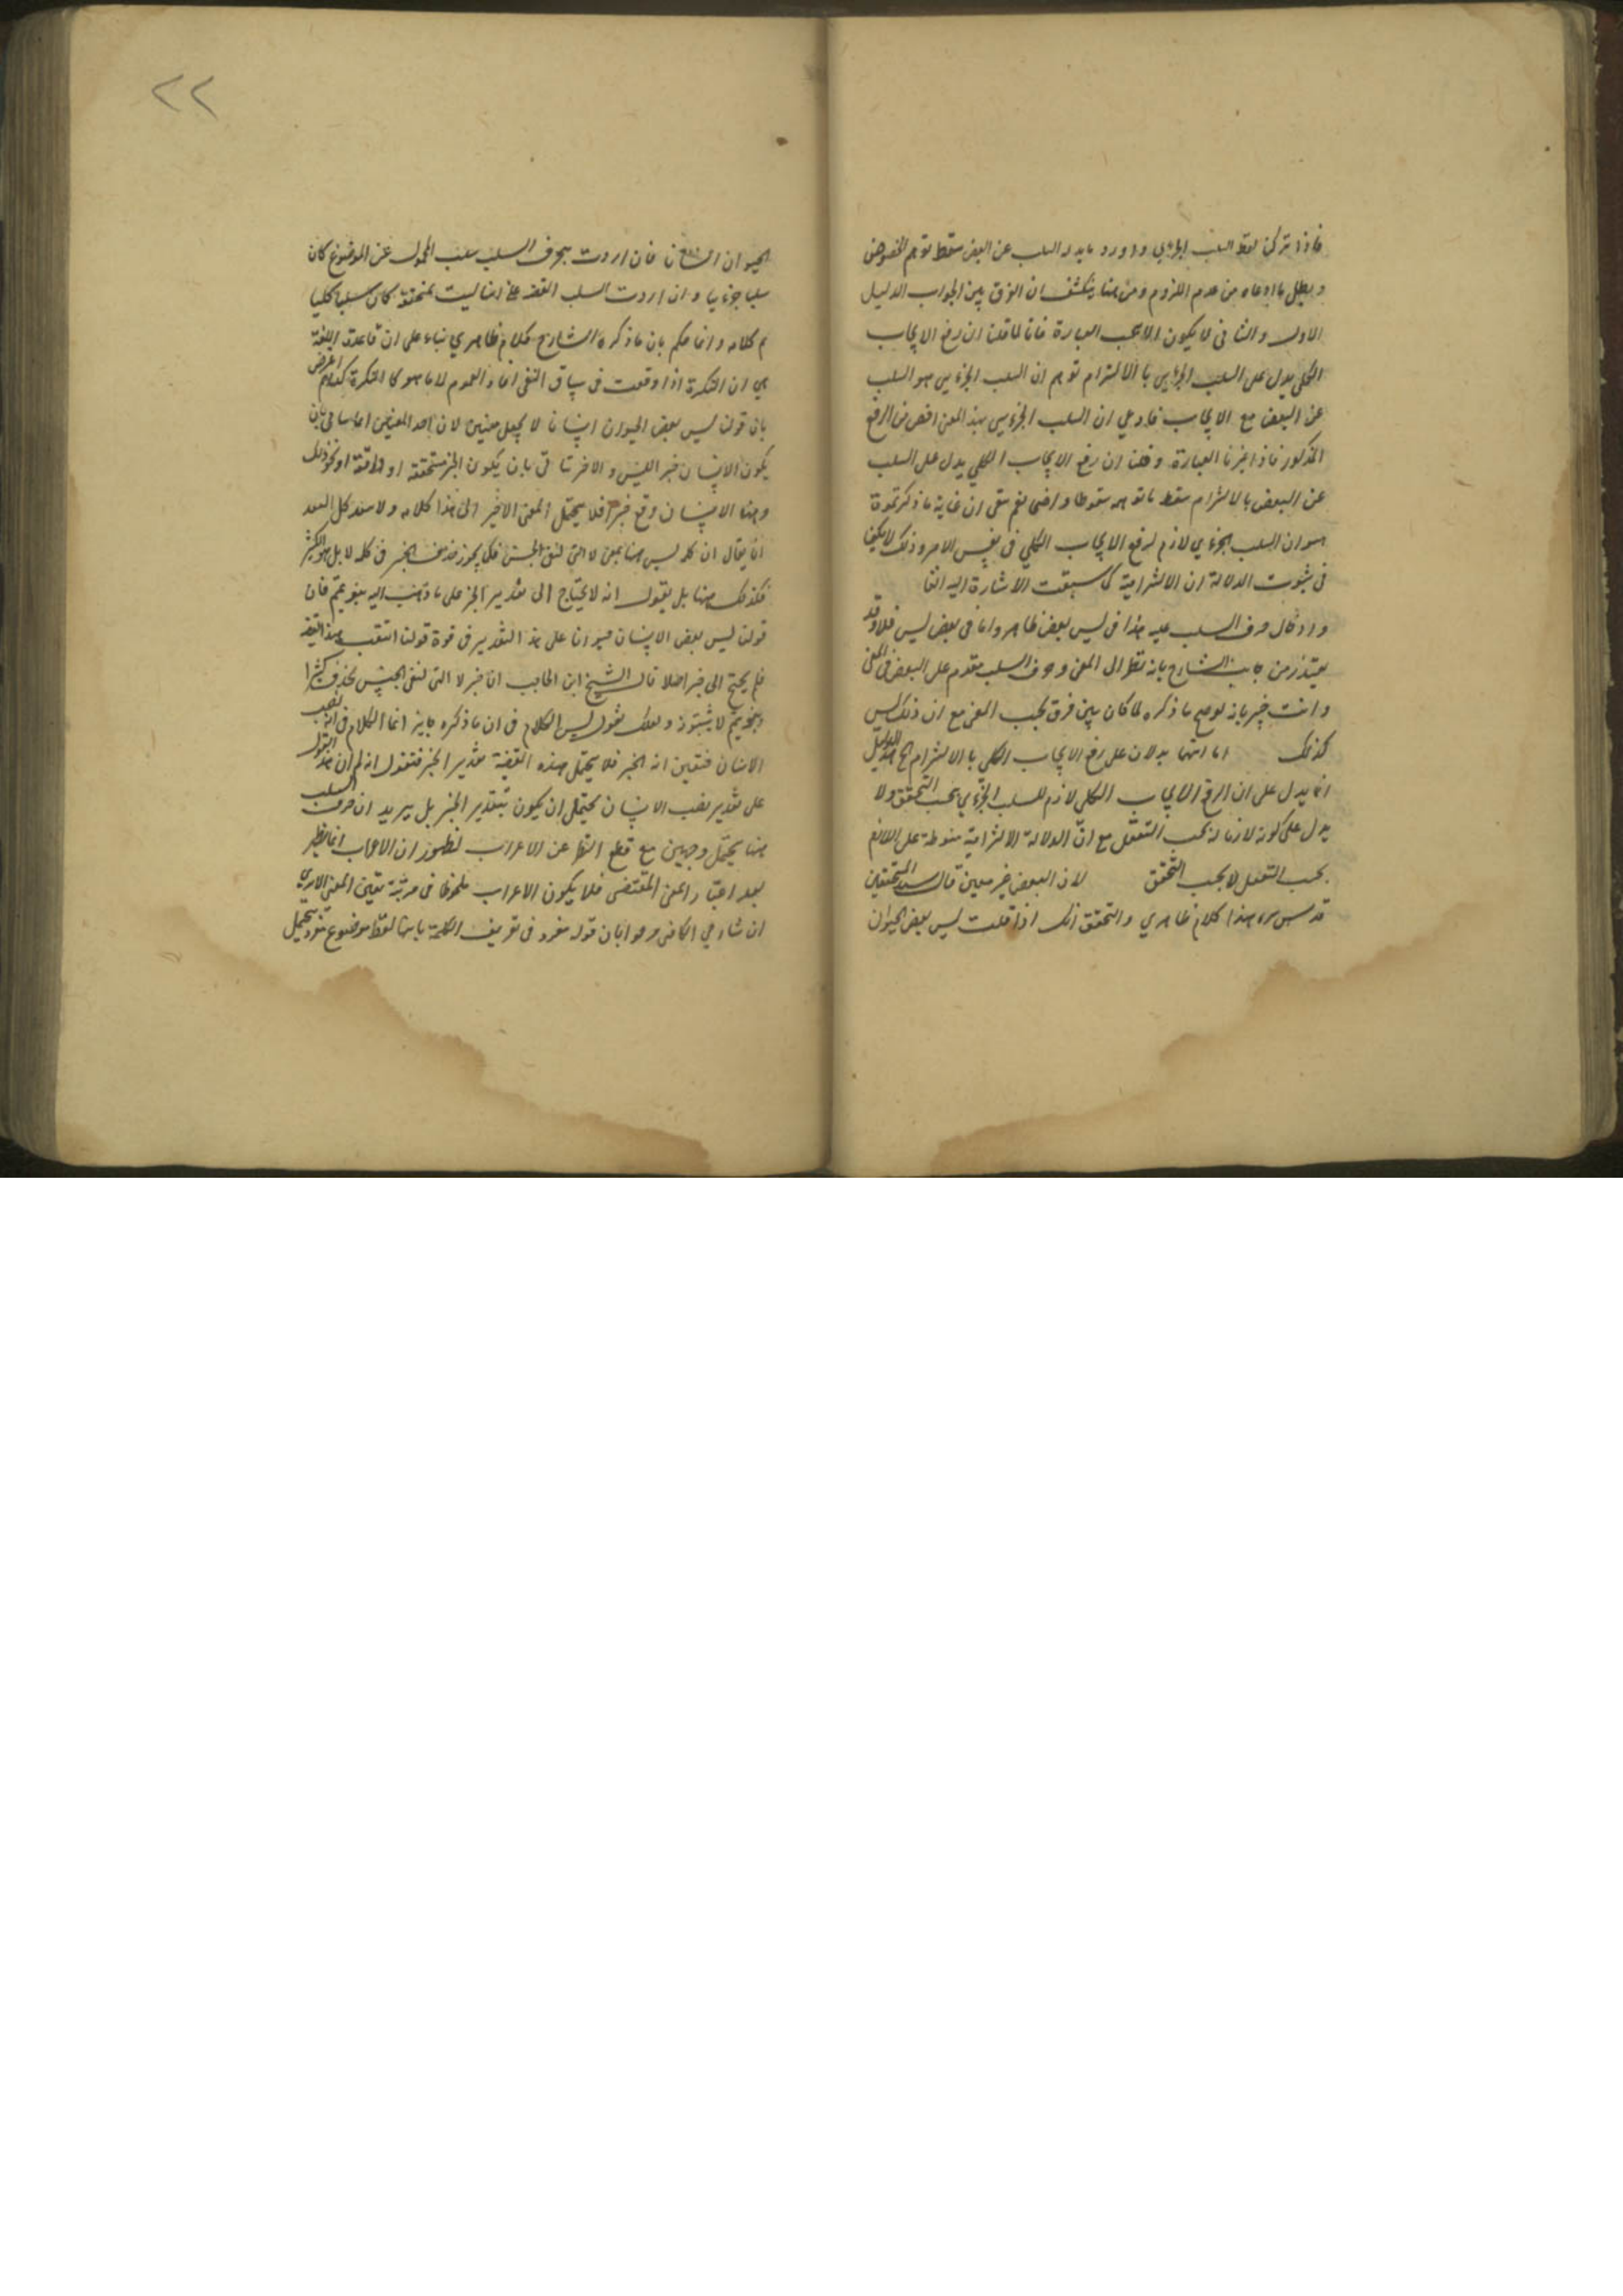 فاذا ترك لفظ السلب الجزئي واورد بدله السلب عن البعض سقط توهم الخصوص
وبطل ما ادعاه من عدم اللزوم ومن هنا ينكشف ان الفرق بين الجواب الدليل
الاول والثاني لا يكون الا بحسب العبارة فانا لما قلنا ان رفع الايجاب
الكلي يدل على السلب الجزئي بالالتزام توهم ان السلب الجزئي هو السلب
عن البعض مع الايجاب فادعي ان السلب الجزئي بهذا المعنى اخص من الرفع
المذكور فاذا غيرنا العبارة وقلنا ان رفع الايجاب الكلي يدل على السلب
عن البعض بالالتزام سقط ما توهمه سقوطا واضحا نعم بقي ان غاية ما ذكرتموه
هو ان السلب الجزئي لازم لرفع الايجاب الكلي في نفس الامر وذلك لا يكفي
في ثبوت الدلالة الالتزامية كما سبقت الاشارة اليه
حرف السلب عليه هذا في ليس بعض ظاهر واما في بعض ليس فلا وقد
يعتذر من جانب الشارح بانه نظر الى المعنى وحرف السلب مقدم على البعض في المعنى
وانت خبير بانه لو صح ما ذكره لما كان بين فرق بحسب المعنى مع ان ذلك ليس
كذلك اما انهما يدلان على رفع الايجاب الكلي بالالتزام الخ هذا الدليل
انما يدل على ان الرفع الايجاب الكلي لازم للسلب الجزئي بحسب التحقق ولا
يدل على كونه لازما له بحسب التعقل مع ان الدلالة الالتزامية منوطة على اللازم
بحسب التعقل لا بحسب التحقق لان البعض غير معين قال سيد المحققين
قدس سره هذا كلام ظاهري والتحقق انك اذا قلت ليس بعض الحيوان
٢٢
الحيوان انسانا فان اردت بحرف السلب سلب المحمول عن الموضوع كان
سلبا جزئيا وان اردت السلب القضية انها ليست بمتحققة كان سلبا كليا
تم كلامه وانما حكم بان ما ذكره الشارح كلام ظاهري بناء على ان قاعدة اللغة
هي ان النكرة اذا وقعت في سياق النفي افاد العموم
بان قولنا ليس بعض الحيوان انسانا لا يحتمل معنيين لان احد المعنيين انما يتأتى بان
يكون الانسان خبر الليس والاخر يتأتى بان يكون الخبر متحققة او واقعة او نحو ذلك
وهنا الانسان وقع خبرا فلا يحتمل المعنى الاخير الى هذا كلامه
ان يقال ان كلمة ليس هنا بمعنى لا التي لنفي الجنس فكما يجوز حذف الخبر في كلمة لا بل هو الكثير
فكذلك هنا بل نقول انه لا يحتاج الى تقدير الخبر على ما ذهب اليه بنو تميم فان
قولنا ليس بعض الانسان حيوانا على هذا التقدير في قوة قولنا انتفت هذه القضية
فلم يحتج الى خبر اصلا قال الشيخ ابن الحاجب اما خبر لا التي لنفي الجنس يحذف كثيرا
وبنو تميم لا يثبتونه ولعلك تقول ليس الكلام في ان ما ذكره جايز انما الكلام في انه نصب
الانسان فتعين انه الخبر فلا يحتمل هذه القضية تقدير الخبر فنقول انه لم يرد ان هذا القول
على تقدير نصب الانسان يحتمل ان يكون بتقدير الخبر بل يريد ان حرف السلب
هنا يحتمل وجهين مع قطع النظر عن الاعراب لظهور ان الاعراب انما يظهر
بعد اعتبار المعنى المقتضي فلا يكون الاعراب ملحوظا في مرتبة تعيين المعنى
ان شارحي الكافي صرحوا بان قوله مفرد في تعريف الكلمة بانها لفظ موضوع مفرد يحتمل